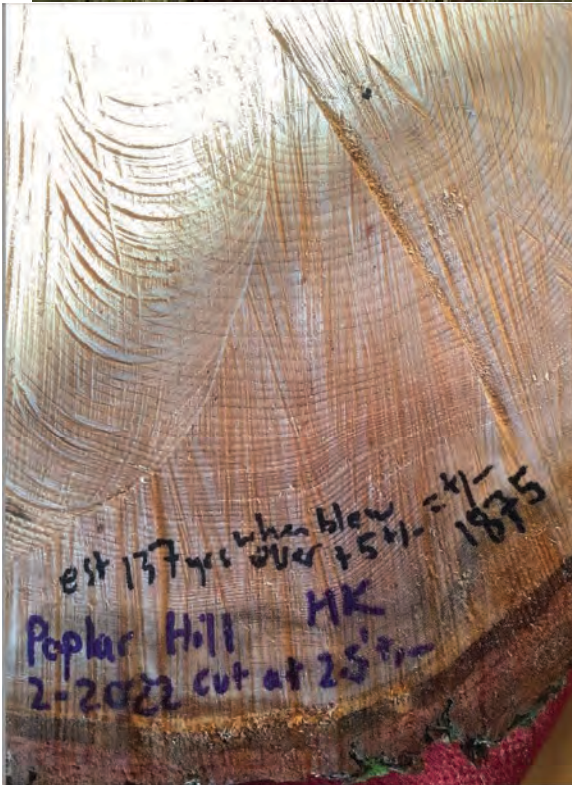 est 137 yrs when blew over +5 +/- = +/- 1875
Poplar Hill HK
2-2022 cut at 2.5' +/-